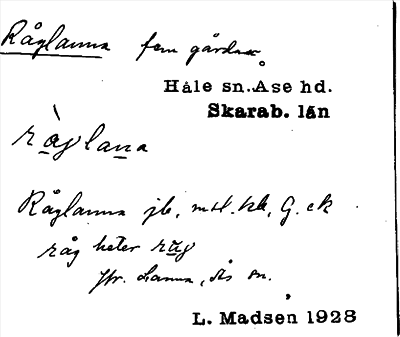 Råglanna fem gårdar
Håle sn. Åse hd.
Skarab. län
ràglana
Råglanna jb, mtl. kb, G. ek
råg heter rug
Jfr. Lanna, Ås sn.
L. Madsen 1928